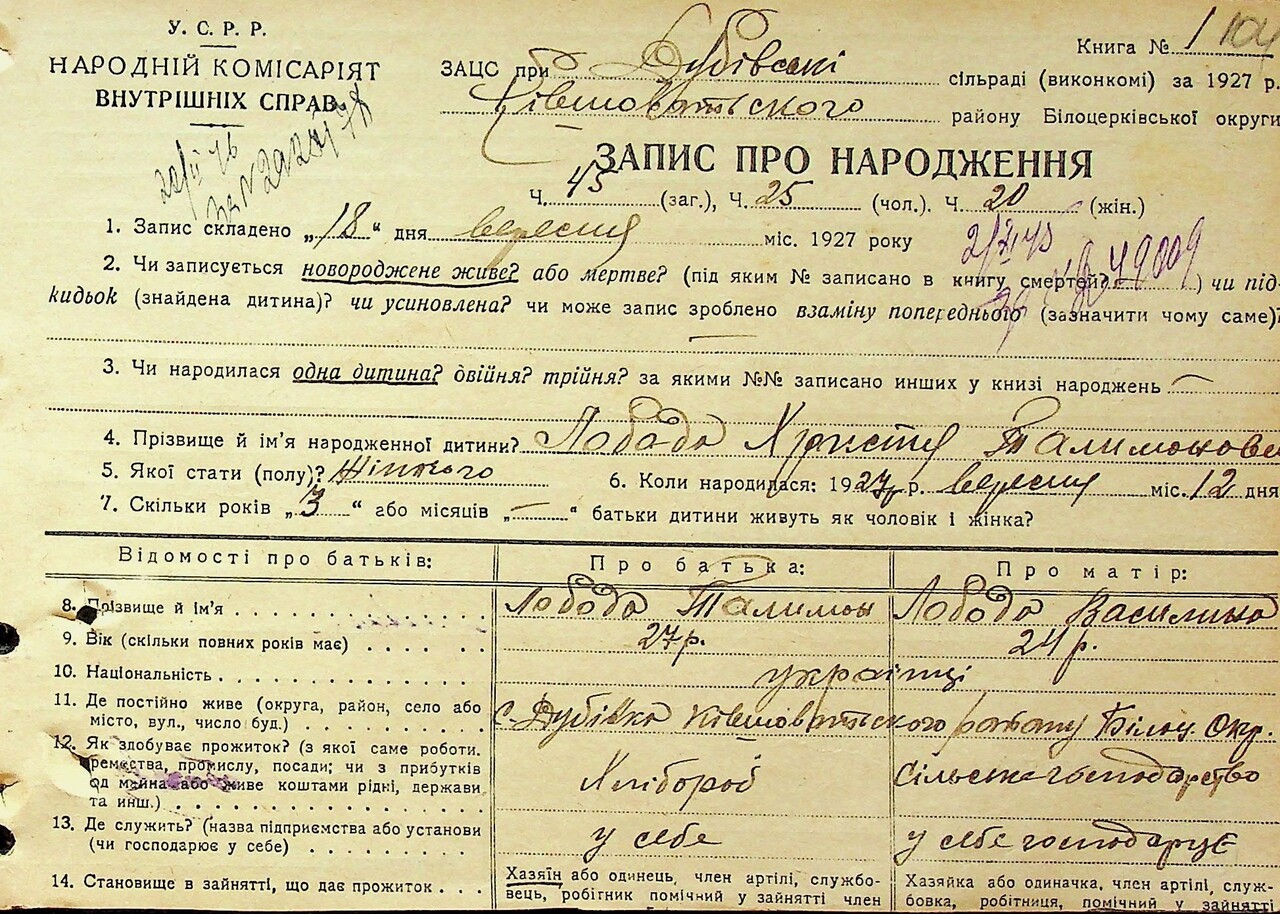 У. С. Р. Р.
НАРОДНІЙ КОМІСАРІЯТ
ВНУТРІШНІХ СПРАВ
Книга № 1 104
ЗАЦС при Дубівські сільраді (виконкомі) за 1927 р.
Ківшоватського району Білоцерківської округи
ЗАПИС ПРО НАРОДЖЕННЯ
Ч. 45 (заг.), Ч. 25 (чол.). Ч. 20 (жін.)
1. Запис складено „18“ дня вересня міс. 1927 року
2. Чи записується новороджене живе? або мертве? (під яким № записано в книгу смертей? ) чи під-
кидьок (знайдена дитина)? чи усиновлена? чи може запис зроблено взаміну попереднього (зазначити чому саме)?
3. Чи народилася одна дитина? двійня? трійня? за якими №№ записано инших у книзі народжень —
4. Прізвище й ім'я народженної дитини? Лобода Христя Талимонов
5. Якої стати (полу)? Жіночого 6. Коли народилася: 1927 р. вересня міс. 12 дня
7. Скільки років „3“ або місяців „—“ батьки дитини живуть як чоловік і жінка?
Відомості про батьків: Про батька: Про матір:
8. Прізвище й ім'я Лобода Талимон Лобода Василина
9. Вік (скільки повних років має) 27 р. 24 р.
10. Національність українці
11. Де постійно живе (округа, район, село або
місто, вул., число буд.) с. Дубівка Ківшоватського району Білоц. Окр.
12. Як здобуває прожиток? (з якої саме роботи.
ремества, промислу, посади; чи з прибутків
од майна або живе коштами рідні, держави
та инш.) Хлібороб Сільське господарство
13. Де служить? (назва підприємства або установи
(чи господарює у себе) у себе у себе господарює
14. Становище в зайнятті, що дає прожиток Хазяїн або одинець, член артілі, службо- Хазяйка або одиначка, член артілі, служ-
вець, робітник помічний у зайнятті член бовка, робітниця, помічний у зайнятті